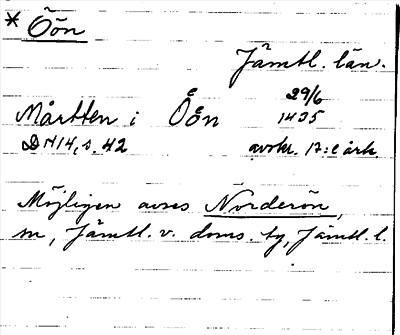 * Öön
Jämtl. län.
Mårtten i Öön 29/6 1435
DN 14, s. 42 avskr. 17:e årh.
Möjligen avses Norderön,
sn, Jämtl. v. doms. tg, Jämtl. l.